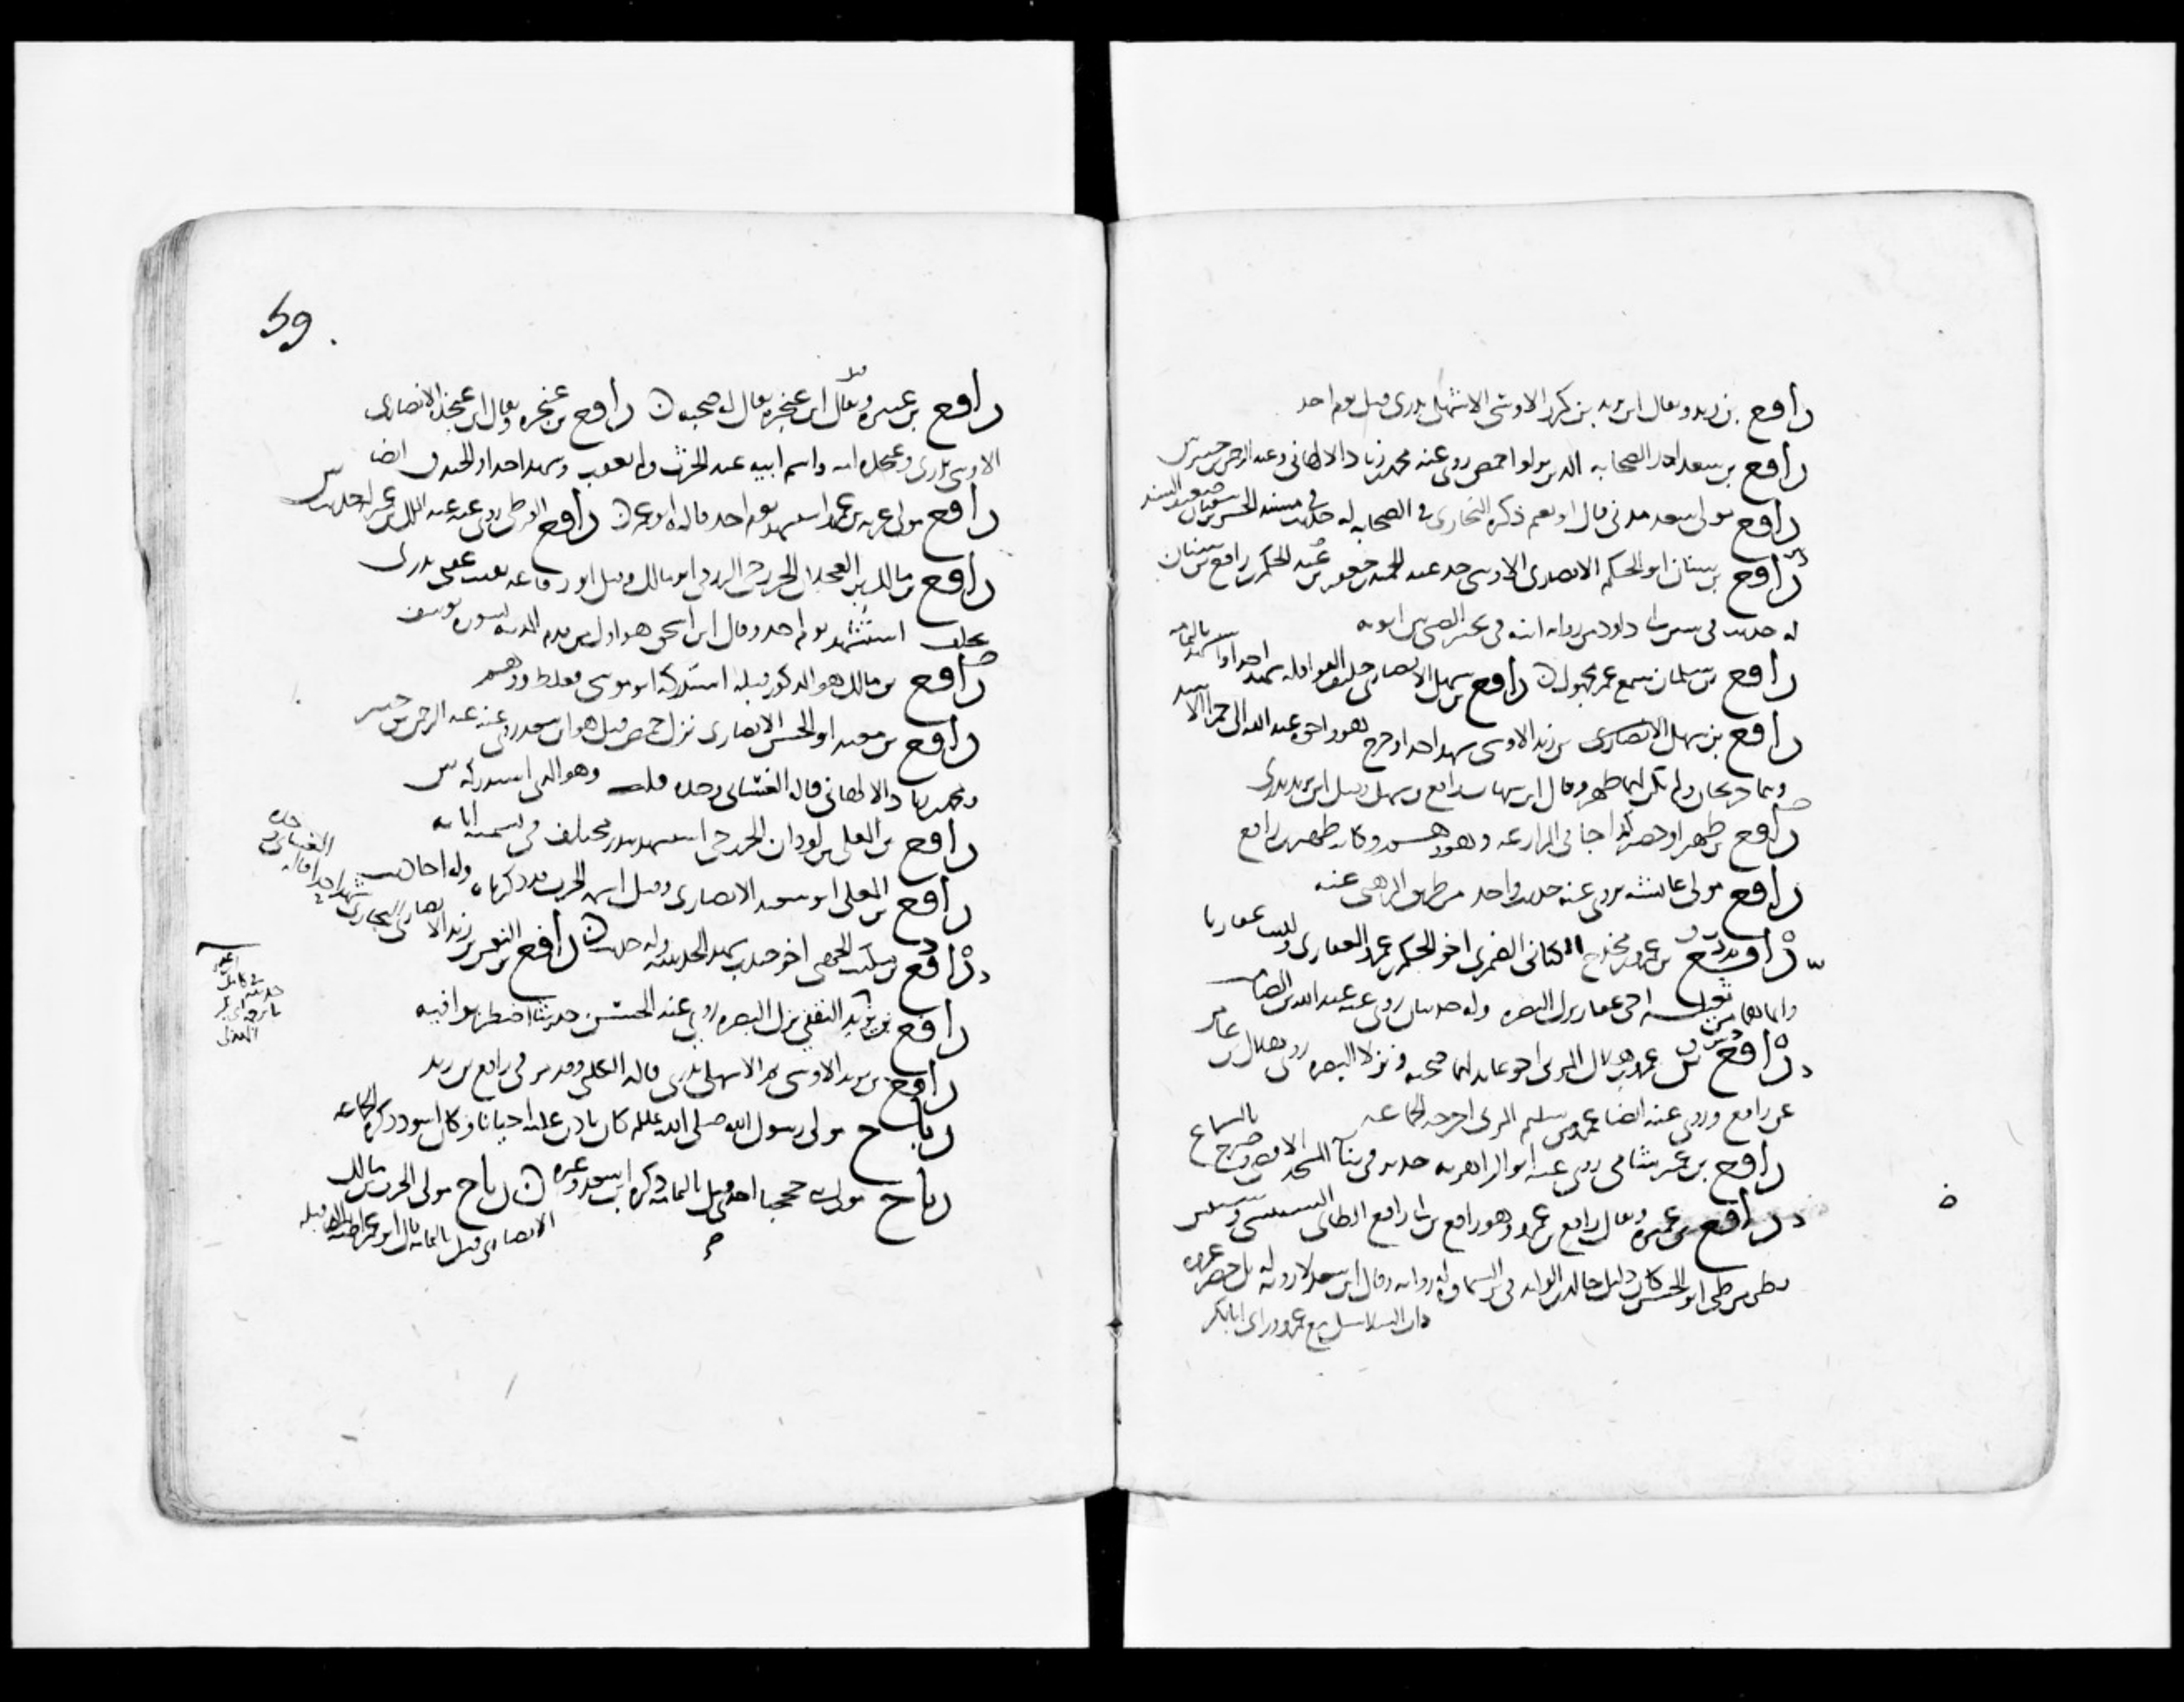 رافع بن زيد ويقال ابن يزيد بن كرز الاوسي الاشهلي بدري قتل يوم احد
رافع بن سعد احد الصحابه الذين نزلوا حمص روى عنه محمد بن زياد الالهاني وعبد الرحمن بن جبير س
رافع مولى سعد مدني قال ابو نعيم ذكره البخاري في الصحابه له حديث في مسند الحسن بن سفيان ضعيف السند
رافع بن سنان ابو الحكم الانصاري الاوسي جد عبد الحميد بن جعفر بن عبد الحكم بن رافع بن سنان
له حديث في سنن ابي داود من روايه ابنه في تخيير الصبي بين ابويه
رافع بن سلمان سمع عمر مجهول ن رافع بن سهل الانصاري حليف القواقله شهد احدا واستشهد باليمامه
رافع بن سهل الانصاري بن زيد الاوسي شهد احدا وخرج هو واخوه عبد الله الى حمرا الاسد
وهما جريحان ولم يكن لهما ظهر وقال ابن شهاب رافع بن سهل وقيل ابن يزيد بدري
رافع بن ظهير او حضير كذا جا في المزارعه وهو وهم وكانه ظهير بن رافع
رافع مولى عائشه يروى عنه حديث واحد من طريق الزهي عنه
رافع بن عمرو بن مخدج الكناني الضمري اخو الحكم بن عمرو الغفاري وليسا غفاريا
وانما هما من ثعلبه اخي غفار نزل البصره وله حديثان روى عنه عبد الله بن الصامت
رافع بن عمرو بن هلال المزني اخو عايذ لهما صحبه ونزلا البصره روى هلال بن عامر
عن رافع وروى عنه ايضا عمرو بن سليم المزني اخرجه الجماعه
رافع بن عمير شامي روى عنه ابو الزاهريه حديثه في بنا المسجد الاقصى وصرح بالسماع
رافع بن عميره ويقال رافع بن عمرو وهو رافع بن ابي رافع الطائي السنبسي
بطن من طي ابو الحسن كان دليل خالد بن الوليد في السماوه له روايه وقال ابن سعد لا رويه له بل حضر غزوه
ذات السلاسل مع عمرو وراى ابا بكر
59
رافع بن عنتره ويقال ابن عنجره يقال له صحبه ن رافع بن عنجره ويقال ابن عنجده الانصاري
الاوسي بدري وعنجده امه واسم ابيه عبد الحرث ولم يعقب وشهد احدا والخندق ايضا
رافع مولى غزيه بن عمرو استشهد يوم احد قاله ابو عمر ن رافع القرظي روى عنه عبد الملك بن عمير له حديث س
رافع بن مالك بن العجلان الخزرجي الزرقي ابو مالك وقيل ابو رفاعه نقيب عقبي بدري
بخلف استشهد يوم احد وقال ابن اسحق هو اول من قدم المدينه بسوره يوسف
رافع بن مالك هو المذكور قبله استدركه ابو موسى فغلط ووهم
رافع بن معبد ابو الحسن الانصاري نزل حمص قيل هو ابن سعد روى عنه عبد الرحمن بن جبير
ومحمد بن زياد الالهاني قاله الغساني وحده قلت وهو الذي استدركه س
رافع بن المعلى بن لوذان الخزرجي استشهد ببدر مختلف في نسبه
رافع بن المعلى ابو سعيد الانصاري وقيل اسمه الحرث قد ذكرناه وله احاديث
رافع بن مكيث الجهني اخو جندب شهد الحديبيه وله حديث ن رافع بن النعمن بن زيد الانصاري النجاري شهد احدا قاله الغساني وحده
رافع بن يزيد الثقفي نزل البصره روى عنه الحسن حديثا اضطربوا فيه
رافع بن يزيد الاوسي ثم الاشهلي بدري قاله الكلبي وقد مر في رافع بن زيد
رباح مولى رسول الله صلى الله عليه كان ياذن عليه احيانا وكان اسود ذكره الجماعه
رباح مولى بني جحجبا احدي قتل باليمامه ذكره ابن سعد وغيره ن رباح مولى الحرث بن مالك
الانصاري قتل باليمامه قال ابو عمر